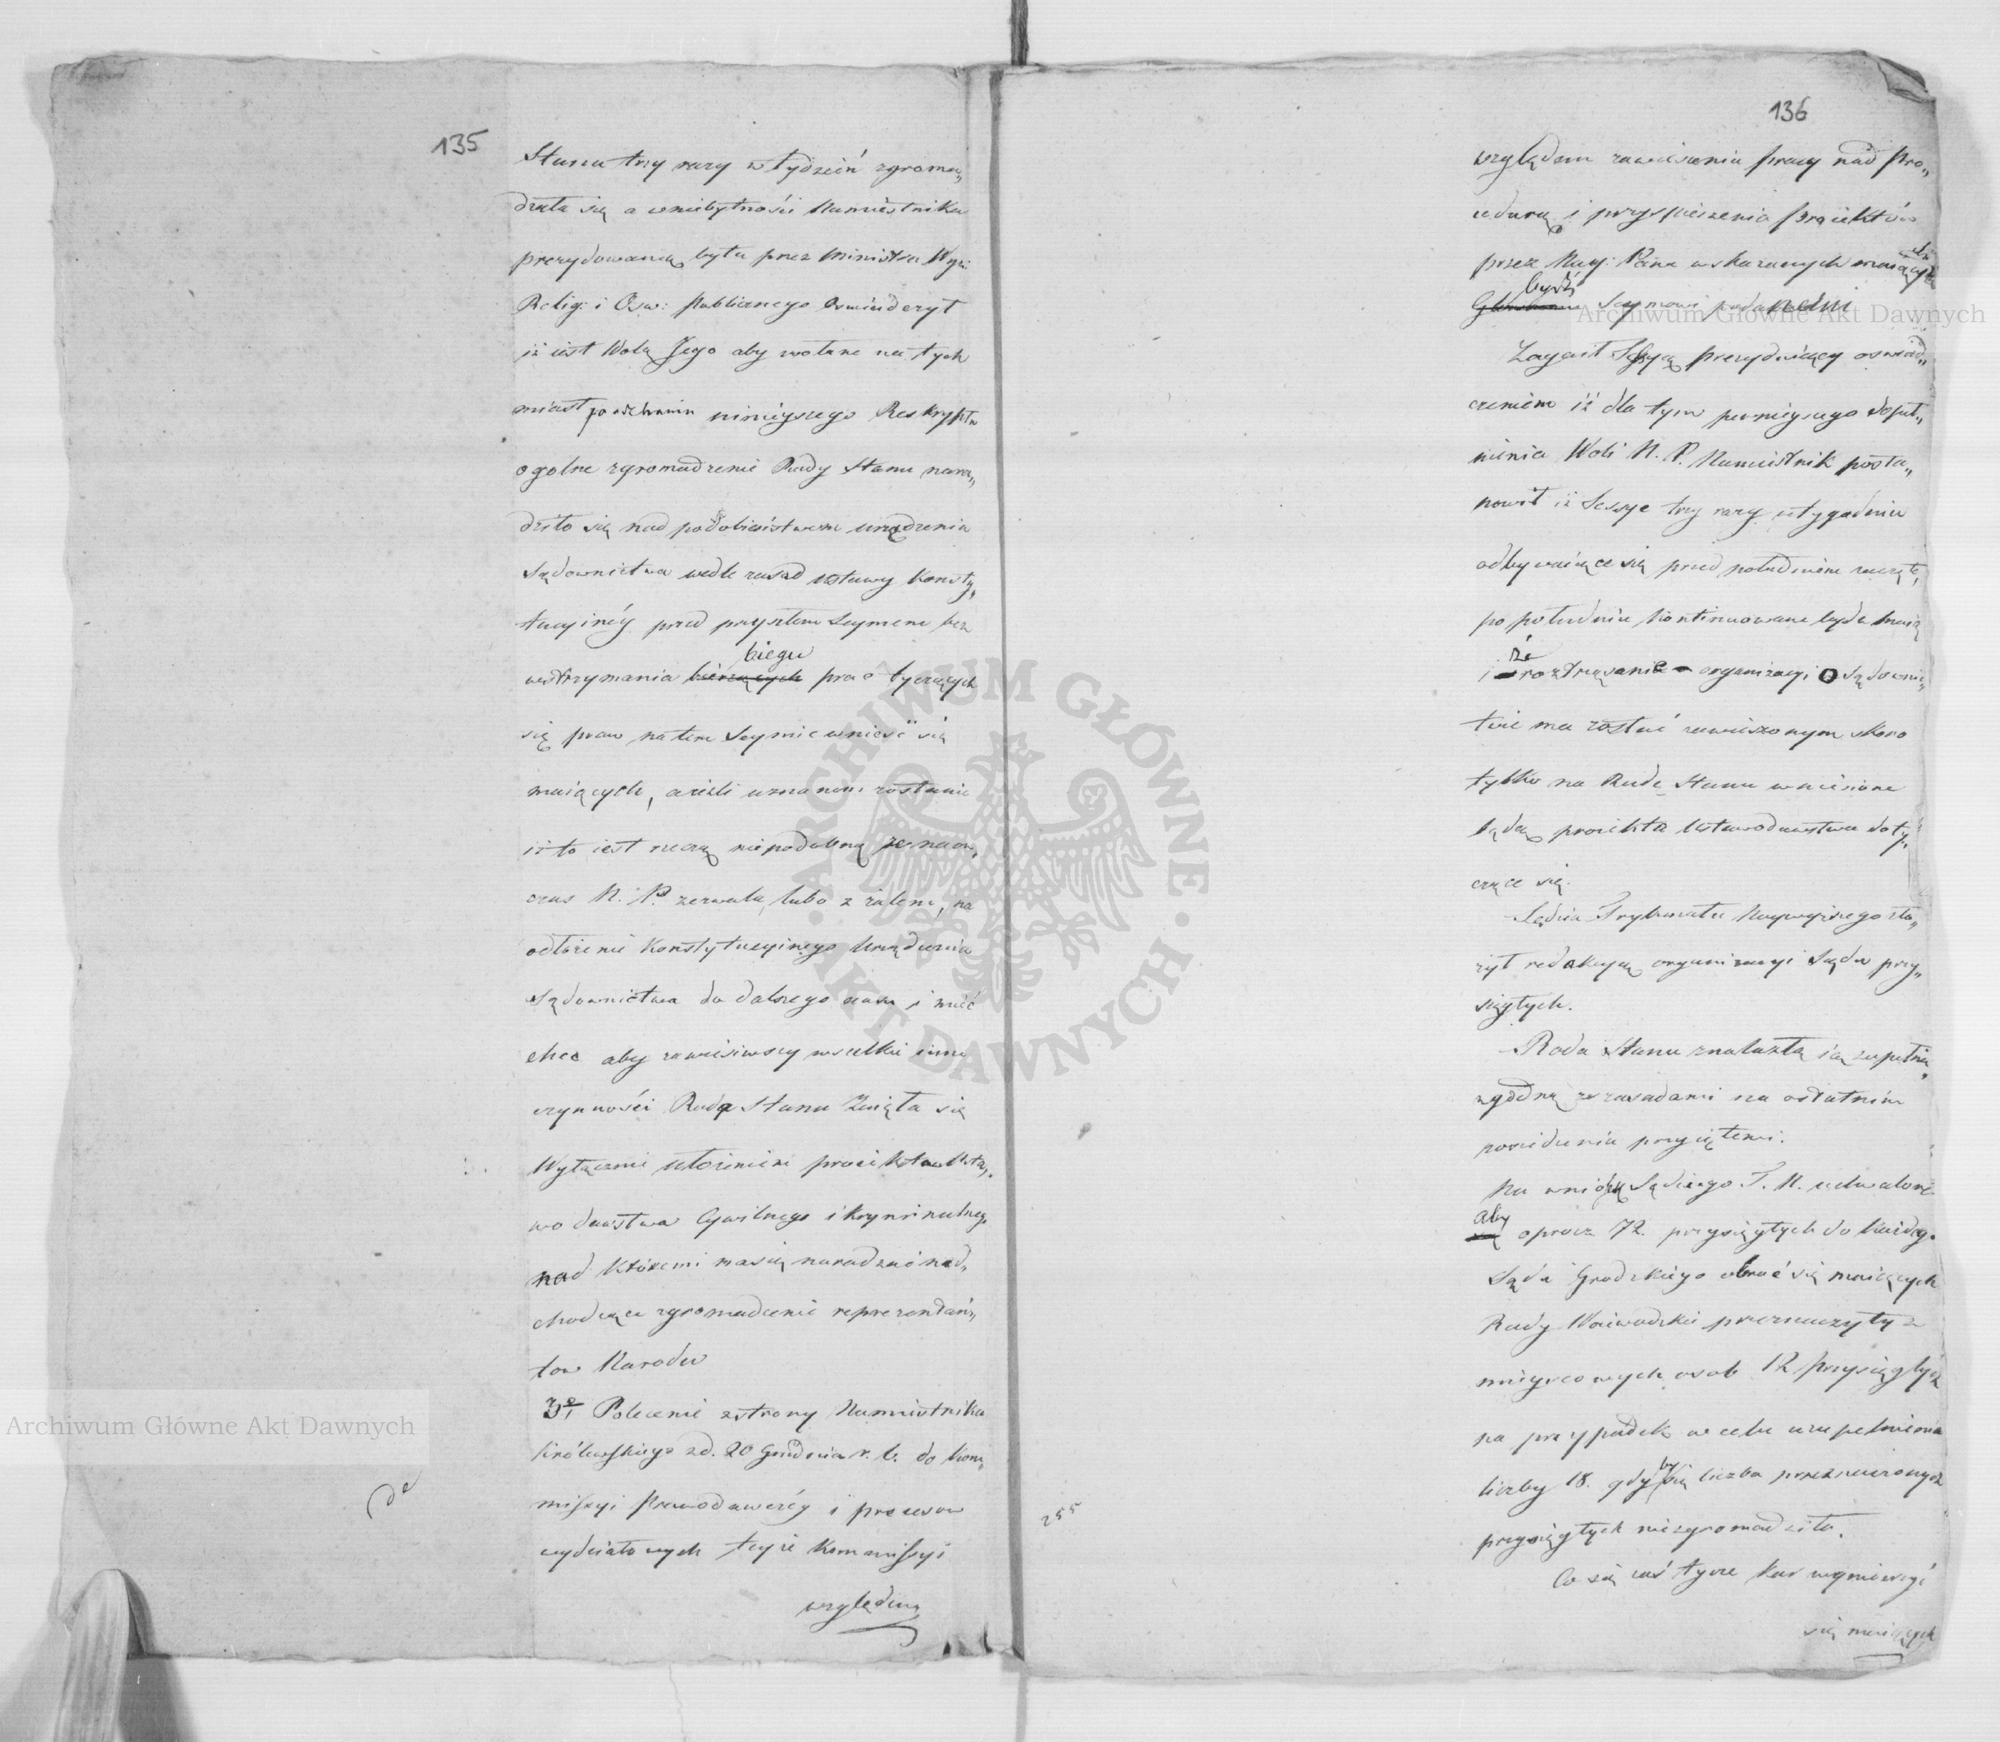 135
Stanu trzy razy w tydzień zgroma„
dzała się a w niebytności Namiestnika
prezydowaną była przez Ministra Wyz:
Relig: i Ośw: Publicznego Oświadczył
iż iest Wolą Jego aby zwołane na tych
miast po odebraniu ninieyszego Reskryptu
ogólne zgromadzenie Rady Stanu nara„
dziło się nad podobieństwem urządzenia
Sądownictwa wedle zasad ustawy Konsty„
tucyinéy przed przyszłem Seymem bez
wstrzymania bieżących biegu prac tyczących
się praw na tem Seymie wnieść się
maiących, a ieżeli uznanem zostanie
iż to iest rzeczą niepodobną
czas N. P. zezwala, lubo z żalem, na
odłożenie Konstytucyinego Urządzenia
Sądownictwa do dalszego czasu i mieć
chce aby zawiesiwszy wszelkie inne
czynności Rada Stanu Zaięła się
Wyłącznie ułożeniem proiektow Usta„
wodawstwa Cywilnego i Kryminalnego
nad któremi ma się naradzać nad„
chodzące zgromadzenie reprezentan„
tow Narodu
3e Polecenie z strony Namiestnika
Królewskiego z d. 20 Grudnia r. b. do Kom„
missyi Prawodawczéy i prezesow
wydziałowych teyże Kommissyi
względem
136
względem zawieszenia pracy nad Pro„
cedurą i przyspieszenia proiektów
przez Nay: Pana wskazanych maiących
bydź Seymowi podanemi
Zagaił Sessyą prezyduiący oświad„
czeniem iż dla tym pewnieyszego dopeł„
nienia Woli N. P. Namiestnik posta„
nowił iż Sessye trzy razy w tygodniu
odbywaiące się przed południem zaczęte,
po południu kontinuowane bydź maią
i że roztrząsanie organizacyi o Sądownic„
twie ma zostać zawieszonym skoro
tylko na Radę Stanu wniesione
będą proiekta Ustawodawstwa doty„
czące się.
Sędzia Trybunału Naywyższego zło„
żył redakcyą organizacyi Sądu przy„
sięgłych.
Rada Stanu znalazła ią zupełnie
zgodną z zasadami na ostatnim
posiedzeniu przyiętemi.
Na wniosek Sędziego T. N. uchwalono
aby oprocz 72. przysięgłych do każdego
Sądu Grodzkiego obrać się maiących
Rady Woiewodzkie przeznaczyły z
mieyscowych osob 12 przysięgłych
na przypadek w celu uzupełnienia
liczby 18. gdyby się liczba przeznaczonych
przysięgłych niezgromadziła.
Co się zaś tycze kar wymierzyć
się maiących
255
Archiwum Główne Akt Dawnych
Archiwum Główne Akt Dawnych
ARCHIWUM GŁÓWNE · AKT DAWNYCH ·